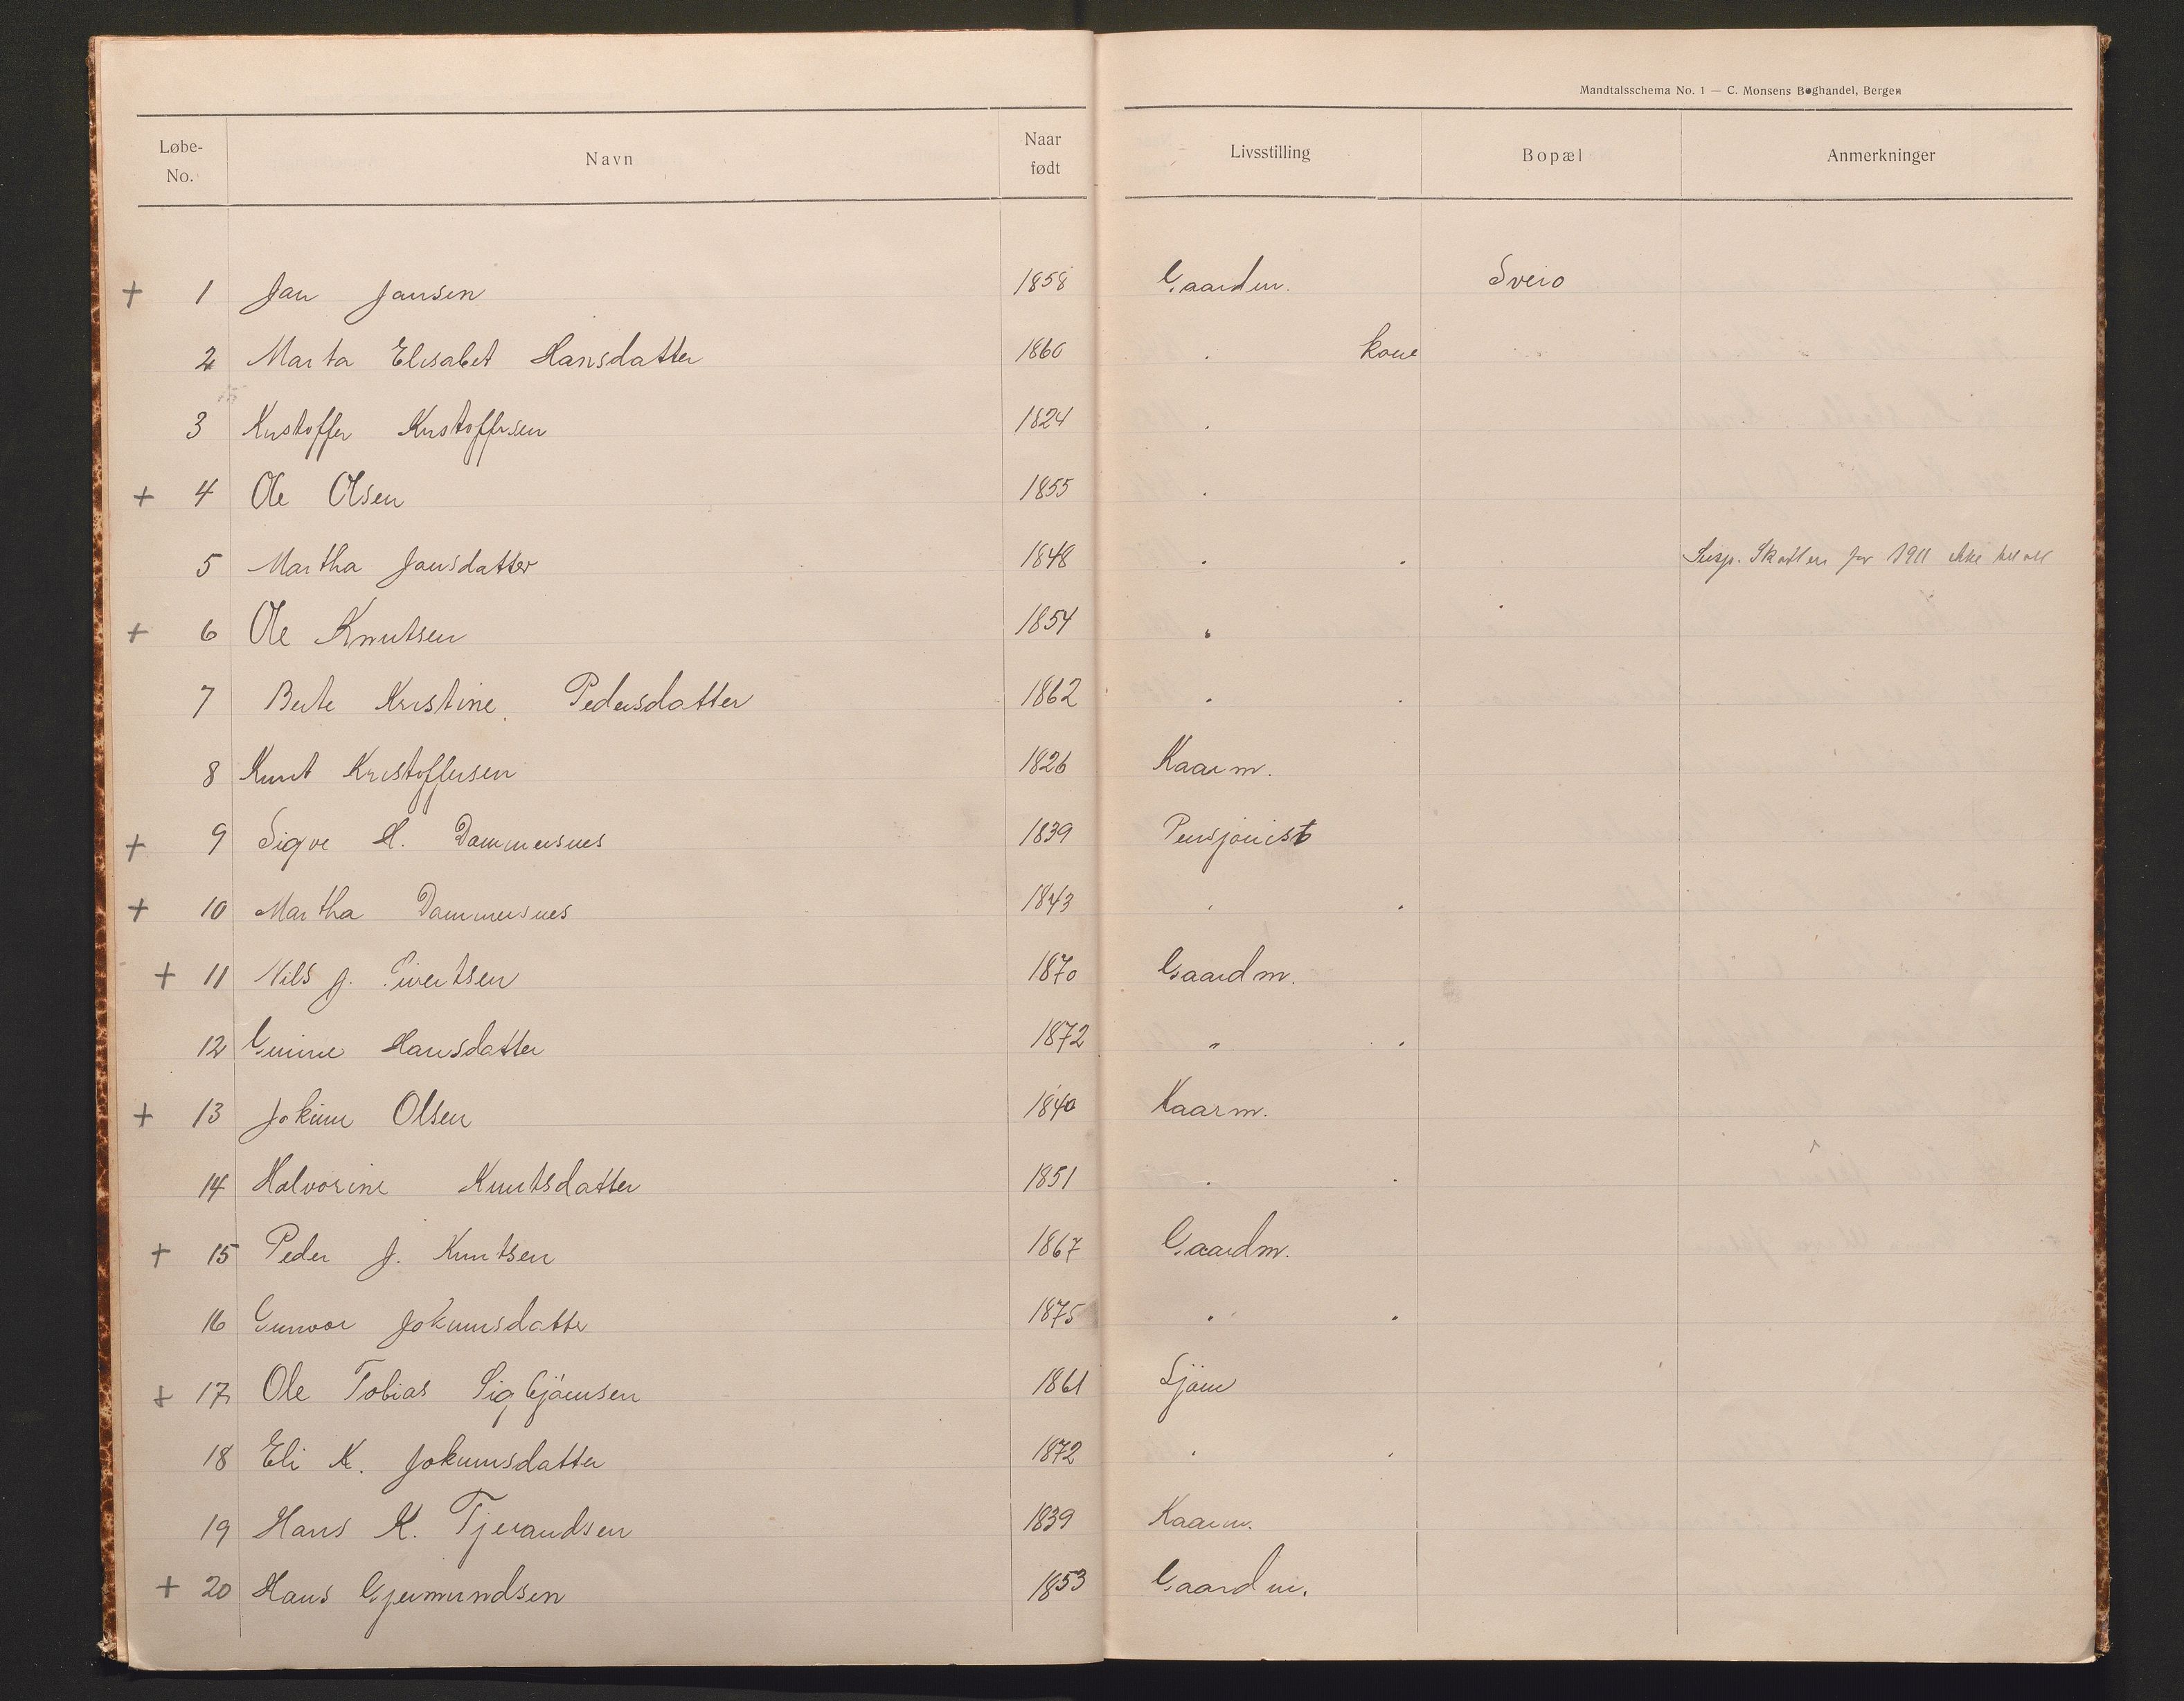 Mandtalsschema No. 1 — C. Monsens Boghandel, Bergen
Løbe-No. Navn Naar født Livsstilling Bopæl Anmerkninger
+ 1 Jan Jansen 1858 Gaardm. Sveio
2 Marta Elisabet Hansdatter 1860 . kone
3 Kristoffer Kristoffersen 1824 .
+ 4 Ole Olsen 1855 .
5 Martha Jansdatter 1848 . . Susp. Skatten for 1911 ikke
+ 6 Ole Knutsen 1854 .
7 Berte Kristine Pedersdatter 1862 . .
8 Knut Kristoffersen 1826 Kaarm.
+ 9 Sigve H. Dommersnes 1839 Pensjonist
+ 10 Martha Dommersnes 1843 . .
+ 11 Nils J. Sivertsen 1870 Gaardm.
12 Gunne Hansdatter 1872 " .
+ 13 Jokum Olsen 1840 Kaarm.
14 Halvorine Knutsdatter 1851 . .
+ 15 Peder J. Knutsen 1867 Gaardm.
16 Gunvor Jokumsdatter 1875 . .
+ 17 Ole Tobias Sigbjörnsen 1861 Sjöm
18 Eli K. Jokumsdatter 1872 . .
19 Hans K. Tjerandsen 1839 Kaarm.
+ 20 Hans Gjermundsen 1853 Gaardm.